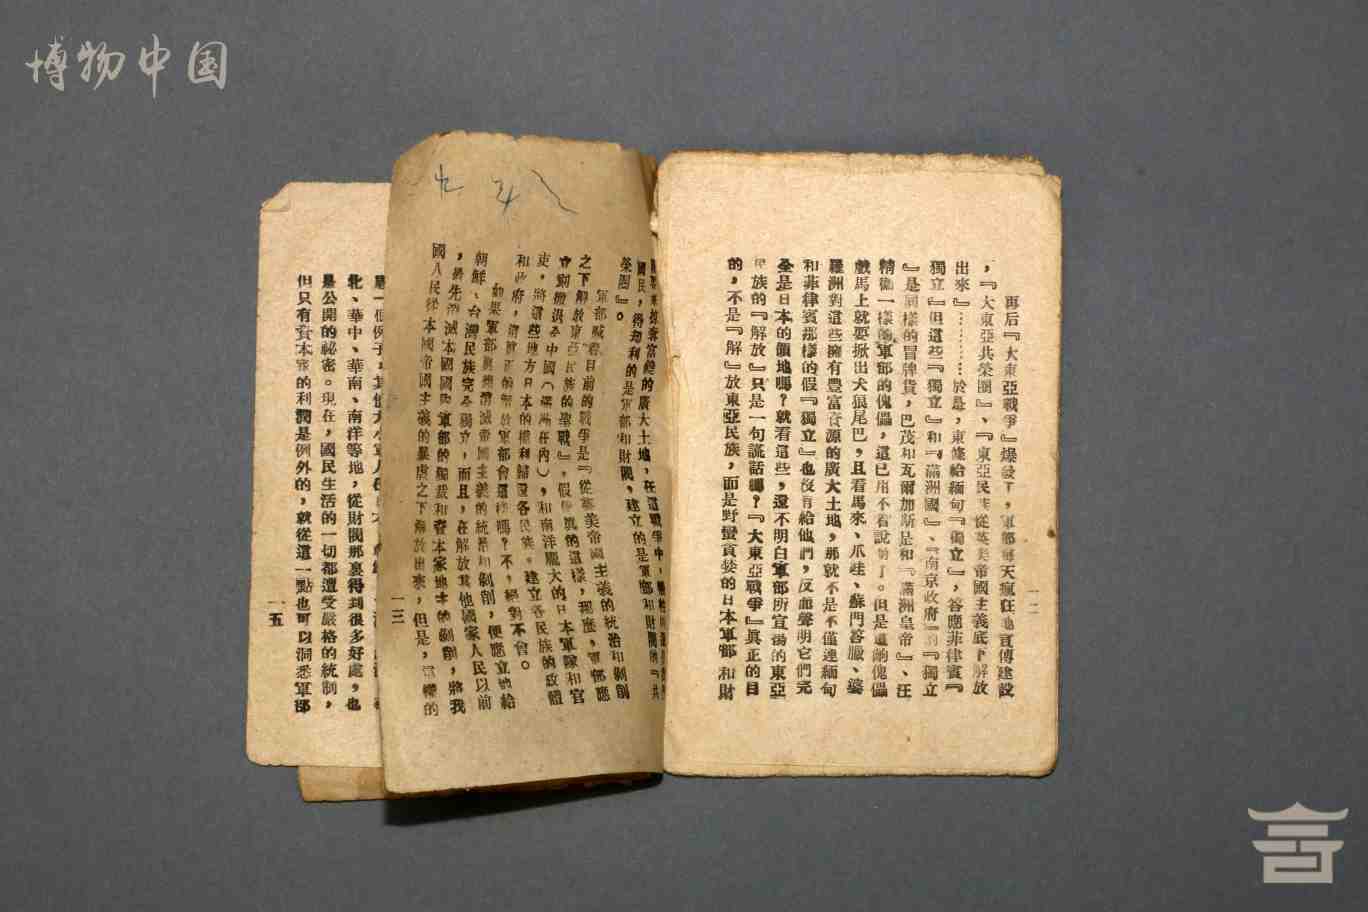 博物中国
再后『大東亞戰爭』爆發了，軍部每天瘋狂地宣傳建設
，『大東亞共榮圈』、『東亞民族從英美帝國主義底下解放
出來』…………於是，東條給緬甸『獨立』，答應菲律賓『
獨立』但這些『獨立』和『滿洲國』、『南京政府』的『獨立
』是同樣的冒牌貨，巴茂和瓦爾加斯是和『滿洲皇帝』、汪
精衛一樣的軍部的傀儡，這已用不着說明了。但是這齣傀儡
戲馬上就要掀出犬狼尾巴，且看馬來、爪哇、蘇門答臘、婆
羅洲對這些擁有豐富資源的廣大土地，那就不是不僅連緬甸
和菲律賓那樣的假『獨立』也沒有給他們，反而聲明它們完
全是日本的領地嗎？就看這些，還不明白軍部所宣揚的東亞
民族的『解放』只是一句謊話嗎？『大東亞戰爭』眞正的目
的，不是『解』放東亞民族，而是野蠻貪婪的日本軍部和財
一二
富饒的廣大土地，在這戰爭中，犧牲的
國民，得到利的是軍部和財閥，建立的是軍部和財閥的『共
榮圈』。
軍部喊着目前的戰爭是『從英美帝國主義的統治和剝削
之下解放東亞民族的聖戰』，假使眞的這樣，那麼，軍部應
立刻撤退全中國（滿洲在內），和南洋龐大的日本軍隊和官
吏，將這些地方日本的權利歸還各民族。建立各民族的政體
和政府，眞正的解放軍部會這樣嗎？不，絕對不會。
如果軍部眞想消滅帝國主義的統治和剝削，便應立地給
朝鮮、台灣民族完全獨立，而且，在解放其他國家人民以前
，得先消滅本國國內軍部的獨裁和資本家地主的剝削，將我
國人民從本國帝國主義的暴虐之下解放出來，但是，這樣的
一三
一個例子，其他大小軍人
北、華中、華南、南洋等地，從財閥那裏得到很多好處，也
是公開的秘密。現在，國民生活的一切都遭受嚴格的統制，
但只有資本家的利潤是例外的，就從這一點也可以洞悉軍部
一五